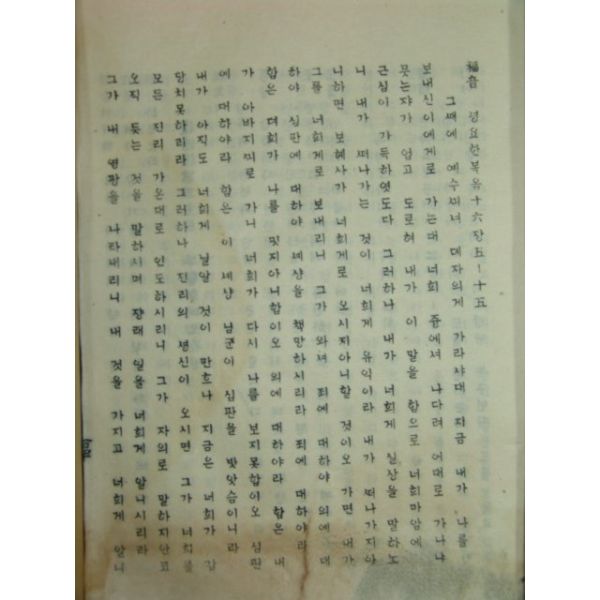 福音 셩요한복음 十六장 五-十五
그때에 예수씨셔 뎨자의게 가라샤대 지금 내가 나를
보내신이에게로 가는대 너희 즁에셔 나다려 어대로 가나냐
뭇는쟈가 업고 도로혀 내가 이 말을 함으로 너희마암에
근심이 가득하엿도다 그러하나 내가 너희게 실샹을 말하노
니 내가 떠나가는 것이 너희게 유익이라 내가 떠나가지아
니하면 보혜사가 너희게로 오시지아니할 것이오 가면 내가
그를 너희게로 보내리니 그가 와셔 죄에 대하야 의에 대
하야 심판에 대하야 셰샹을 책망하시리라 죄에 대하야라
함은 뎌희가 나를 밋지아니함이오 의에 대하야라 함은 내
가 아바지끠로 가니 너희가 다시 나를 보지못함이오 심판
에 대하야라 함은 이 셰샹 남군이 심판을 밧앗슴이니라
내가 아직도 너희게 닐알 것이 만흐나 지금은 너희가 감
당치못하리라 그러하나 진리의 셩신이 오시면 그가 너희를
모든 진리 가온대로 인도하시리니 그가 자의로 말하지안코
오직 듯는 것을 말하시며 쟝래 일을 너희게 알니시리라
그가 내 영광을 나타내리니 내 것을 가지고 너희게 알니